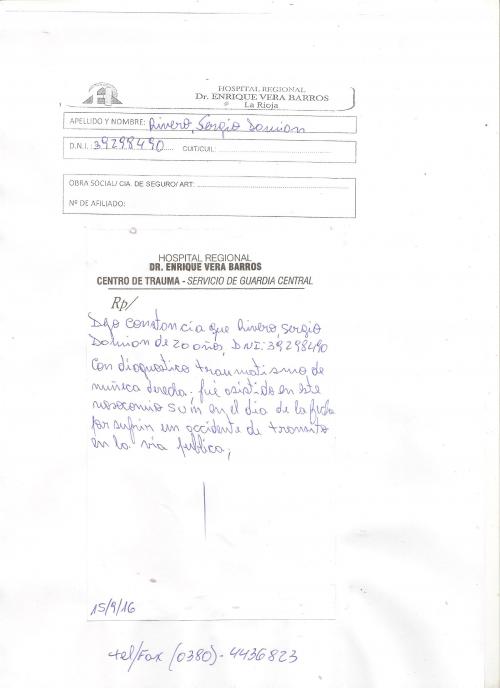 HOSPITAL REGIONAL
Dr. ENRIQUE VERA BARROS
La Rioja
APELLIDO Y NOMBRE: Rivero, Sergio Damian
D.N.I.: 39298490 CUIT/CUIL:
OBRA SOCIAL/ CIA. DE SEGURO/ ART:
Nº DE AFILIADO:
HOSPITAL REGIONAL
DR. ENRIQUE VERA BARROS
CENTRO DE TRAUMA - SERVICIO DE GUARDIA CENTRAL
Rp/
Dejo constancia que Rivero, Sergio
Damian de 20 años, DNI: 39298490
Con diagnostico traumatismo de
muñeca derecha; fué asistido en este
nosocomio en el dia de la fecha
por sufrir un accidente de transito
en la via publica;
15/9/16
tel/Fax (0380)-4436823